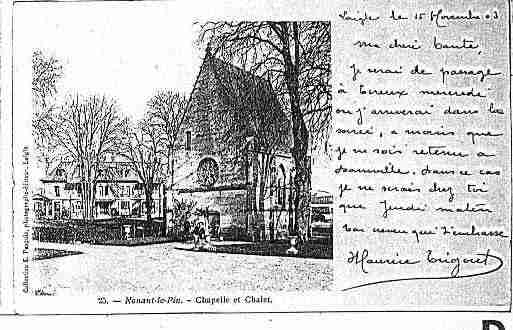 Laigle le 15 Novembre 03
Ma chère tante,
Je serai de passage
à Evreux mercredi
ou j'arriverai dans la
soirée, a moins que
je ne sois retenu a
Dans ce cas
je ne serais chez toi
que Jeudi matin
Ton neveu qui t'embrasse
Maurice
25. — Nonant-le-Pin. - Chapelle et Chalet.
Collection E. photographe-éditeur - Laigle